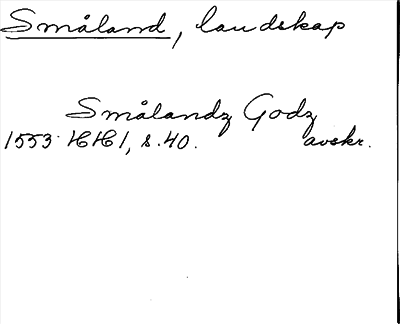 Småland, landskap
Smålandz Godz
1553 HH 1, s. 40. avskr.